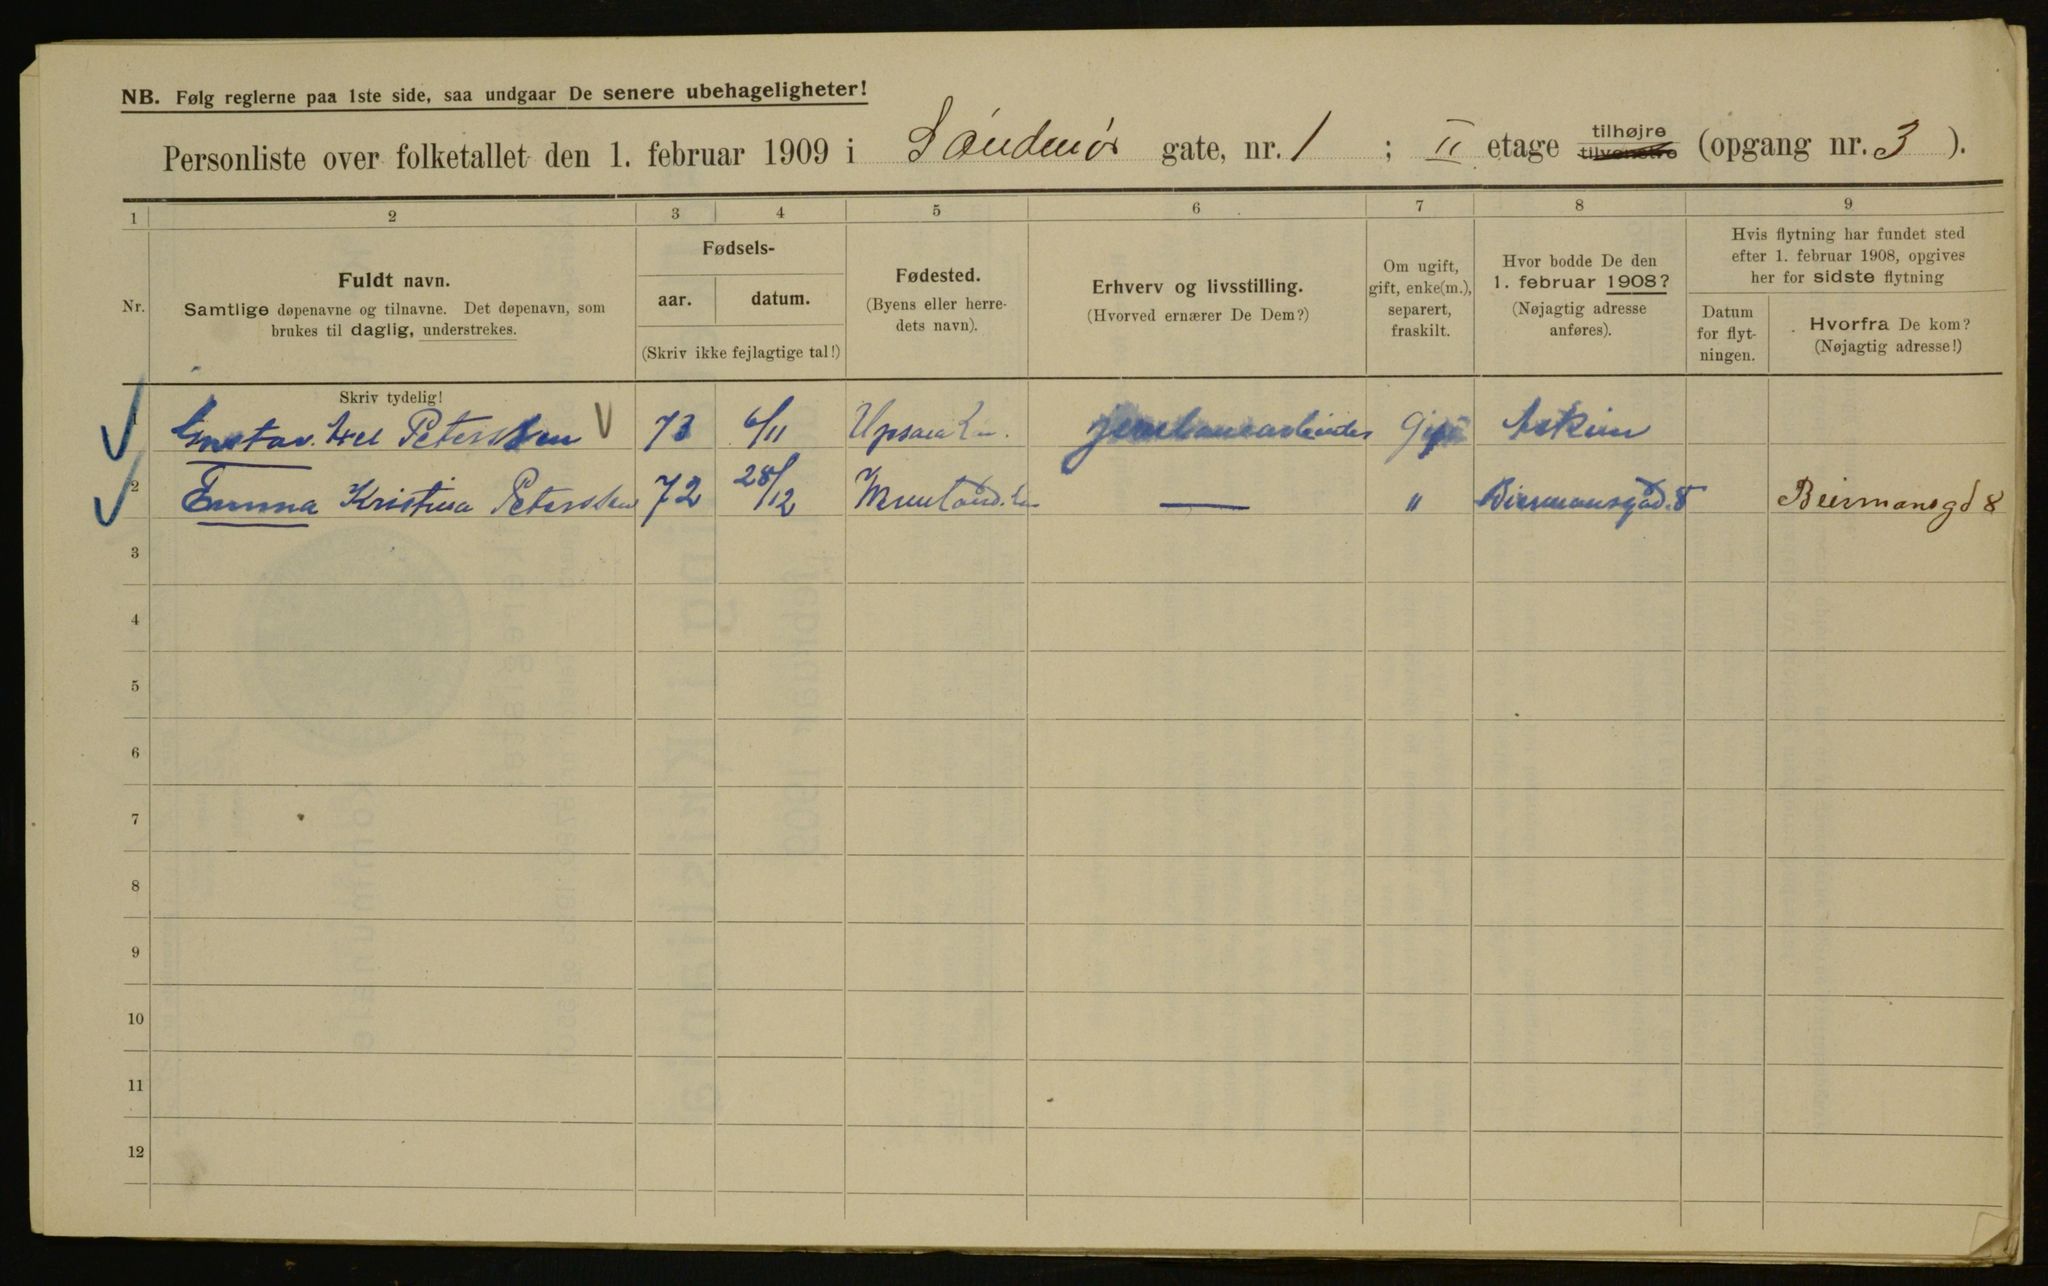 NB. Følg reglerne paa 1ste side, saa undgaar De senere ubehageligheter!
Personliste over folketallet den 1. februar 1909 i Söndmör gate, nr. 1 ; II etage tilhøjre tilvenstre (opgang nr. 3 ).
1 2 3 4 5 6 7 8 9
Nr.
Fuldt navn.
Samtlige døpenavne og tilnavne. Det døpenavn, som
brukes til daglig, understrekes.
Skriv tydelig!
Fødsels-
aar. datum.
(Skriv ikke fejlagtige tal!)
Fødested.
(Byens eller herre-
dets navn).
Erhverv og livsstilling.
(Hvorved ernærer De Dem?)
Om ugift,
gift, enke(m.),
separert,
fraskilt.
Hvor bodde De den
1. februar 1908?
(Nøjagtig adresse
anføres).
Hvis flytning har fundet sted
efter 1. februar 1908, opgives
her for sidste flytning
Datum
for flyt-
ningen.
Hvorfra De kom?
(Nøjagtig adresse!)
1 Gustav. Axel Petersen 73 6/11 Upsala Gift Askim
2 Emma Kristina Petersen 72 28/12 — " Biermansgad. 8 Beiermansgd 8
3
4
5
6
7
8
9
10
11
12